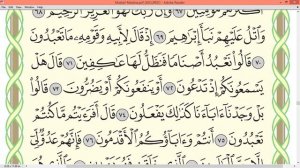 Mushaf Madina.pdf (SECURED) - Adobe Reader
مُّؤْمِنِينَ ٦٧ وَإِنَّ رَبَّكَ لَهُوَ ٱلْعَزِيزُ ٱلرَّحِيمُ ٦٨
وَٱتْلُ عَلَيْهِمْ نَبَأَ إِبْرَٰهِيمَ ٦٩ إِذْ قَالَ لِأَبِيهِ وَقَوْمِهِۦ مَا تَعْبُدُونَ
٧٠ قَالُوا۟ نَعْبُدُ أَصْنَامًا فَنَظَلُّ لَهَا عَٰكِفِينَ ٧١ قَالَ هَلْ
يَسْمَعُونَكُمْ إِذْ تَدْعُونَ ٧٢ أَوْ يَنفَعُونَكُمْ أَوْ يَضُرُّونَ ٧٣ قَالُوا۟
بَلْ وَجَدْنَآ ءَابَآءَنَا كَذَٰلِكَ يَفْعَلُونَ ٧٤ قَالَ أَفَرَءَيْتُم مَّا كُنتُمْ
تَعْبُدُونَ ٧٥ أَنتُمْ وَءَابَآؤُكُمُ ٱلْأَقْدَمُونَ ٧٦ فَإِنَّهُمْ عَدُوٌّ لِّىٓ